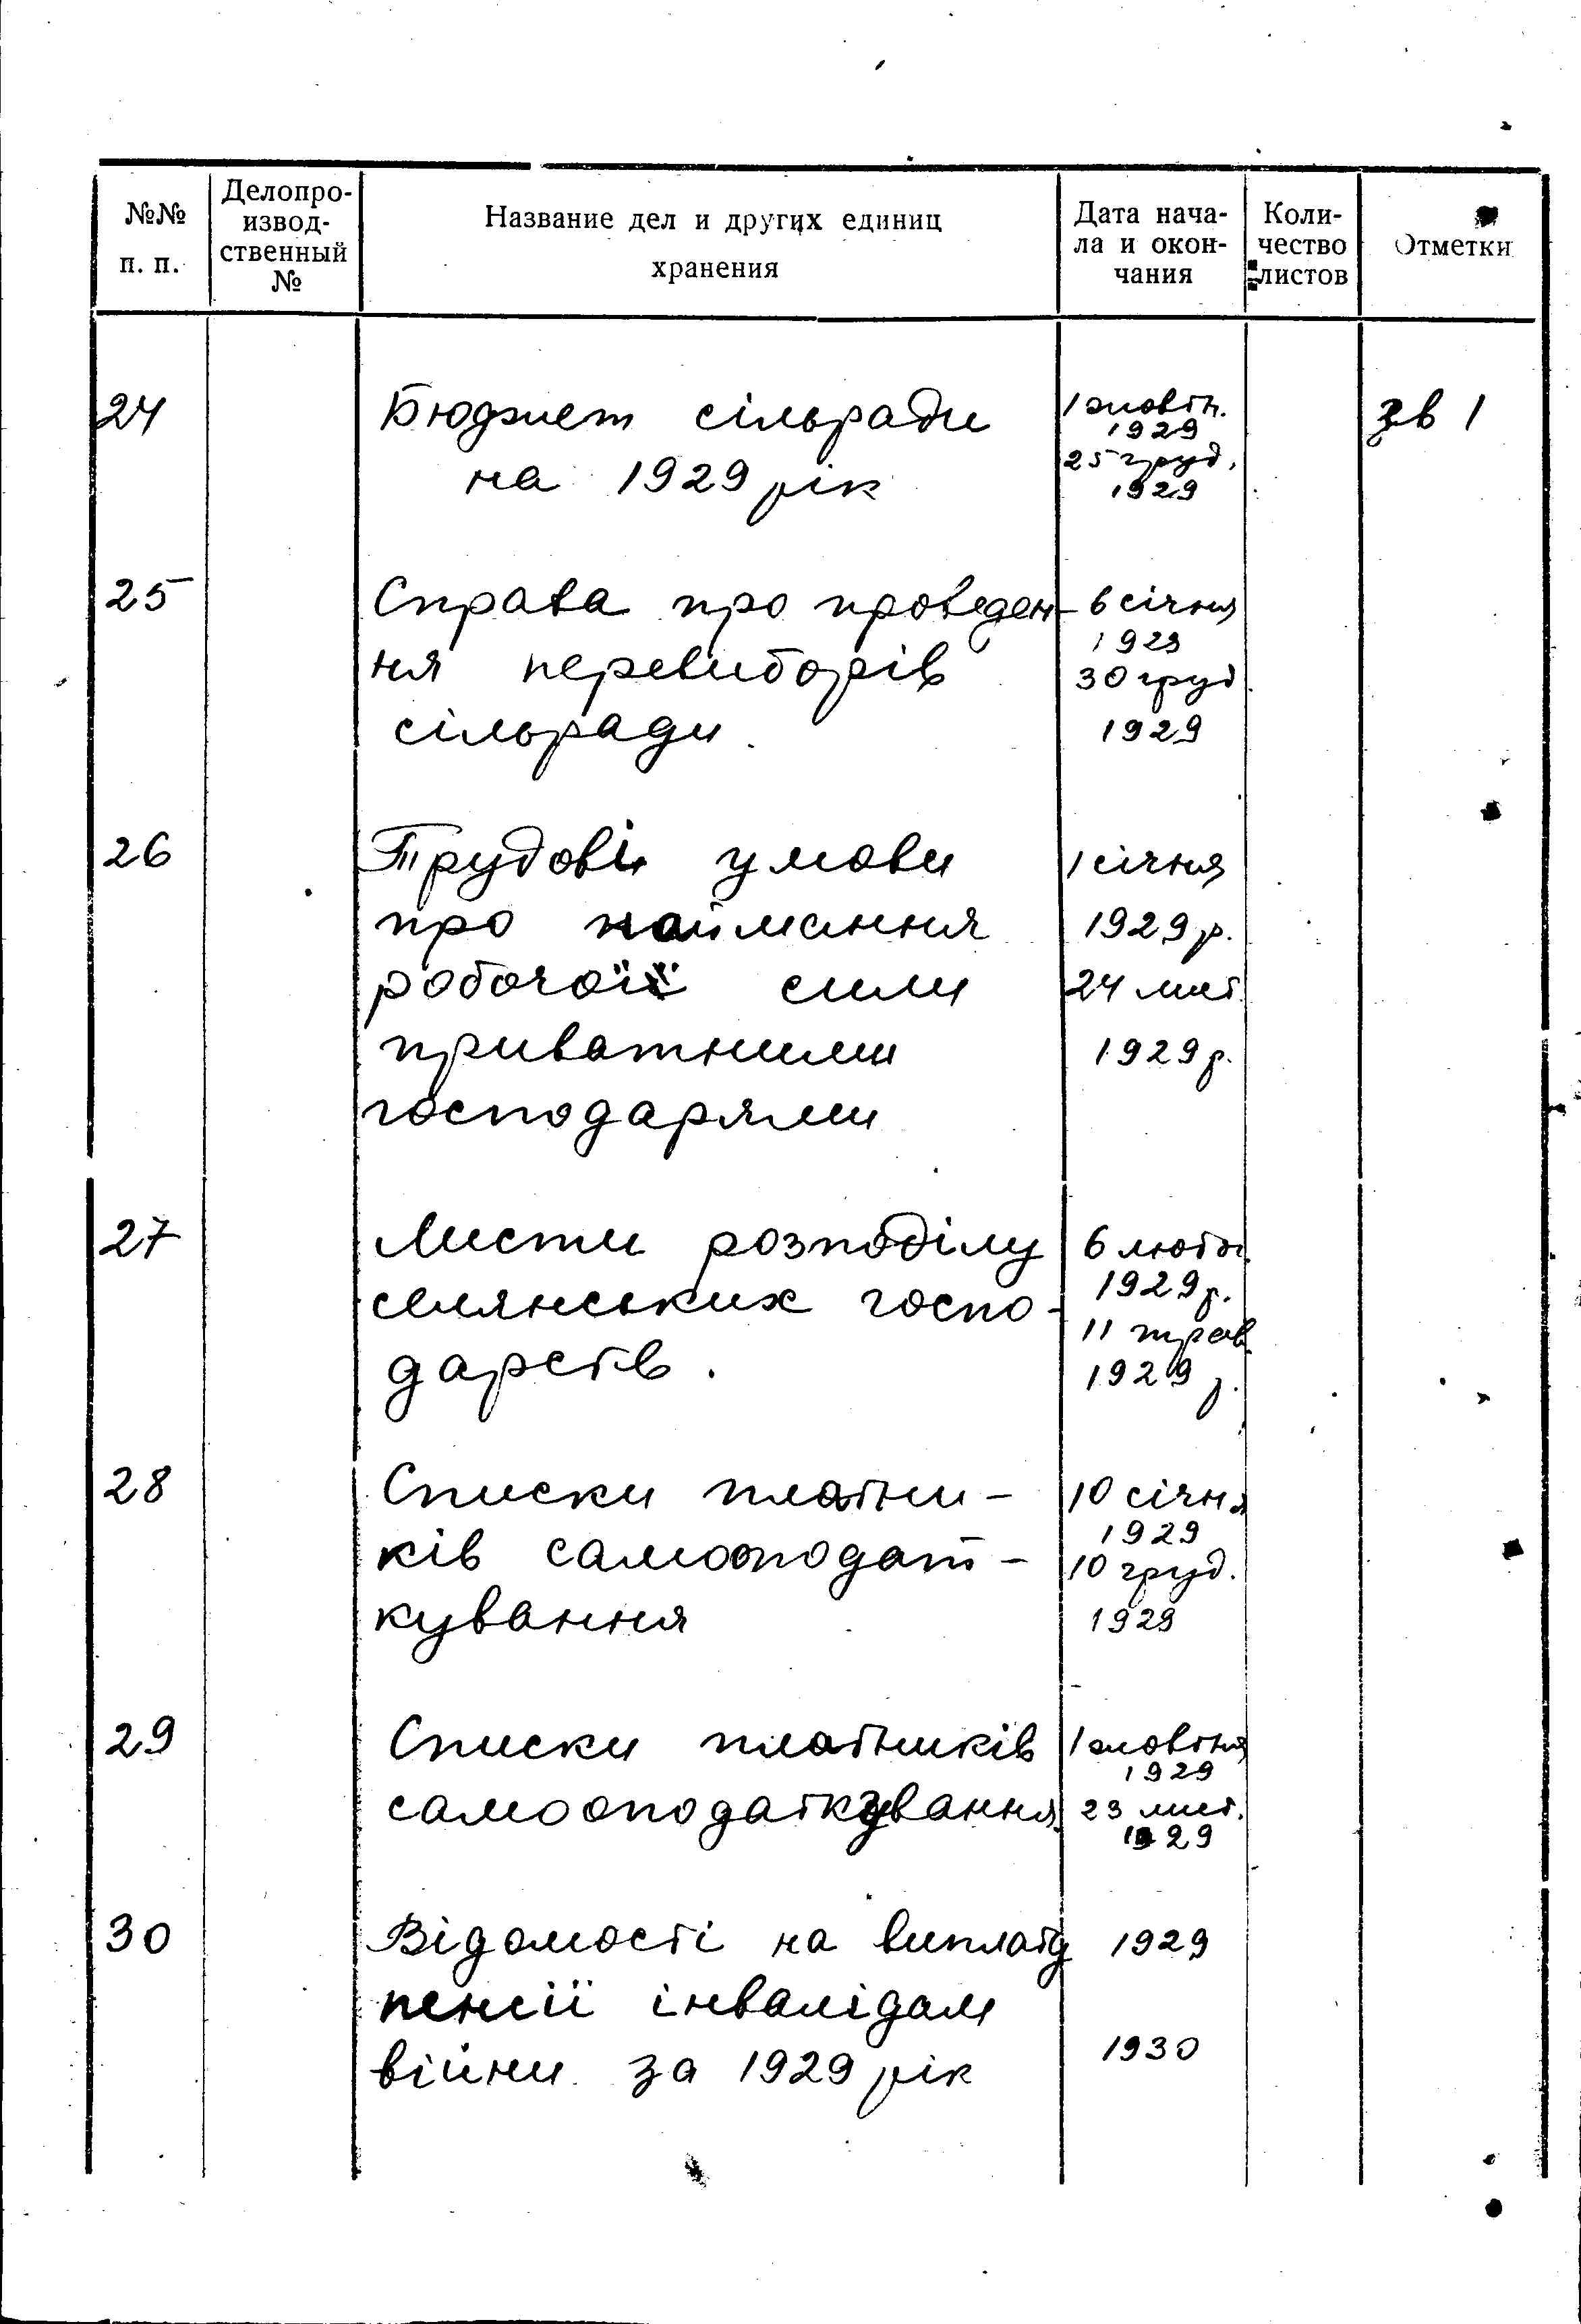 №№ п. п.
Делопро-
извод-
ственный
№
Название дел и других единиц
хранения
Дата нача-
ла и окон-
чания
Коли-
чество
листов
Отметки
24
Бюджет сільради
на 1929 рік
1 жовтн.
1929
25 груд.
1929
зв 1
25
Справа про проведен-
ня перевиборів
сільради.
6 січня
1929
30 груд
1929
26
Трудові умови
про наймання
робочої сили
приватними
господарями
1 січня
1929 р.
24 лист
1929 р.
27
Листи розподілу
селянських госпо-
дарств.
6 лютог.
1929 р.
11 трав.
1929 р.
28
Списки платни-
ків самооподат-
кування
10 січня
1929
10 груд.
1929
29
Списки платників
самооподаткування
1 жовтня
1929
23 лист.
1929
30
Відомості на виплату
пенсії інвалідам
війни за 1929 рік
1929
1930